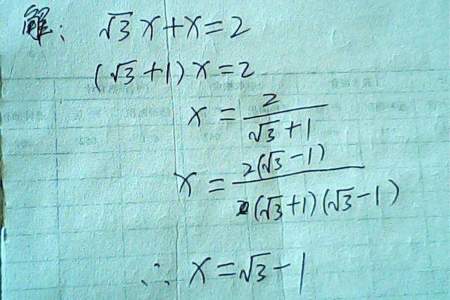 解: √3 x + x = 2
(√3 + 1) x = 2
x = 2/(√3 + 1)
x = 2(√3 - 1)/((√3 + 1)(√3 - 1))
∴ x = √3 - 1